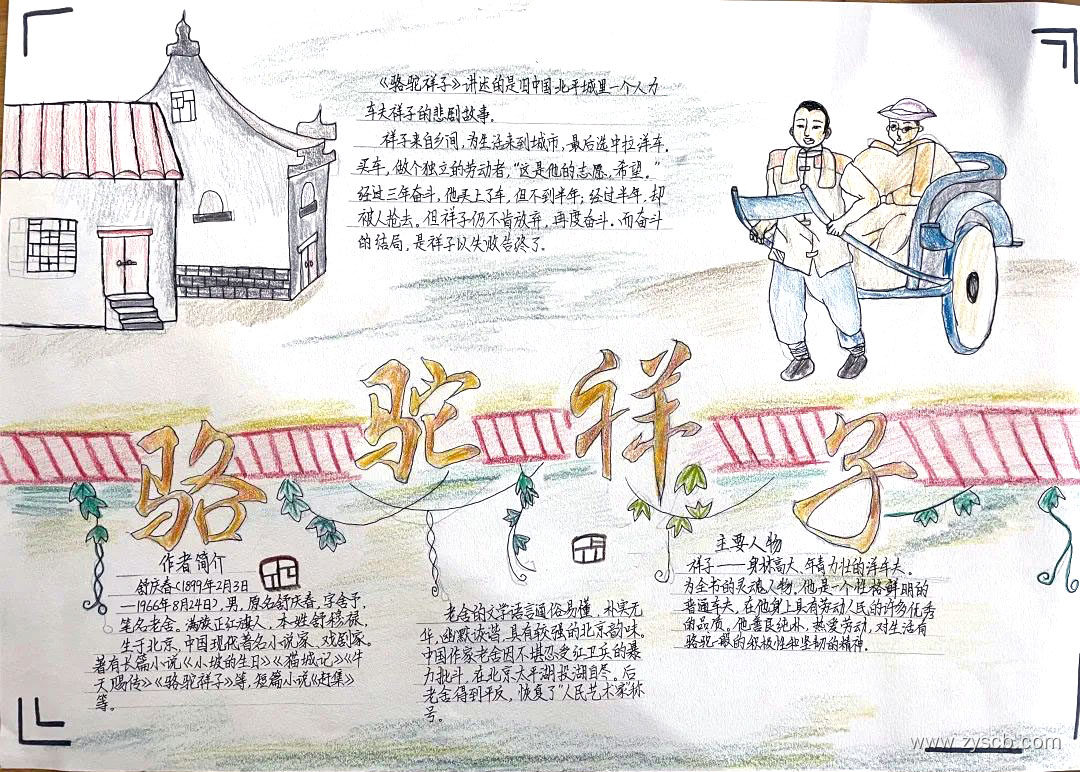 《骆驼祥子》讲述的是旧中国北平城里一个人力
车夫祥子的悲剧故事。
祥子来自乡间,为生活来到城市,最后选中拉洋车,
买车,做个独立的劳动者,“这是他的志愿,希望。”
经过三年奋斗,他买上了车,但不到半年;经过半年,却
被人抢去。但祥子仍不肯放弃,再度奋斗。而奋斗
的结局,是祥子以失败告终了。
骆驼祥子
作者简介
舒庆春(1899年2月3日
—1966年8月24日),男,原名舒庆春,字舍予,
笔名老舍。满族正红旗人,本姓舒穆禄,
生于北京,中国现代著名小说家、戏剧家。
著有长篇小说《小坡的生日》《猫城记》《牛
天赐传》《骆驼祥子》等,短篇小说《赶集》
等。
老舍的文学语言通俗易懂,朴实无
华,幽默诙谐,具有较强的北京韵味。
中国作家老舍因不堪忍受红卫兵的暴
力批斗,在北京太平湖投湖自尽。后
老舍得到平反,恢复了“人民艺术家”称
号。
主要人物
祥子——身材高大、年青力壮的洋车夫。
为全书的灵魂人物,他是一个性格鲜明的
普通车夫,在他身上具有劳动人民的许多优秀
的品质。他善良纯朴,热爱劳动,对生活有
骆驼一般的积极性和坚韧的精神。
www.zyscb.com